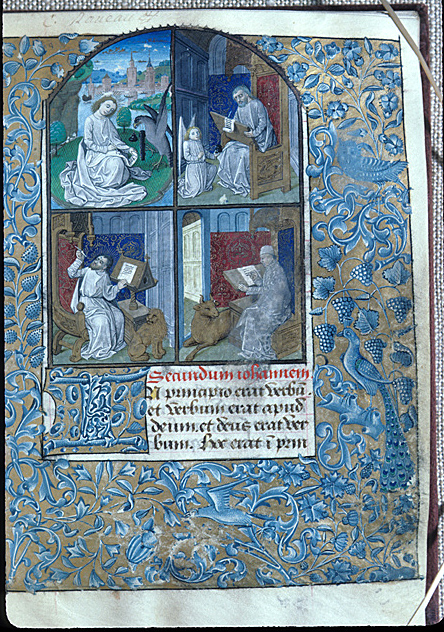 Secundum iohannem
IN principio erat verbū.
et verbum erat apud
deum. et deus erat ver
bum. Hoc erat ī prin